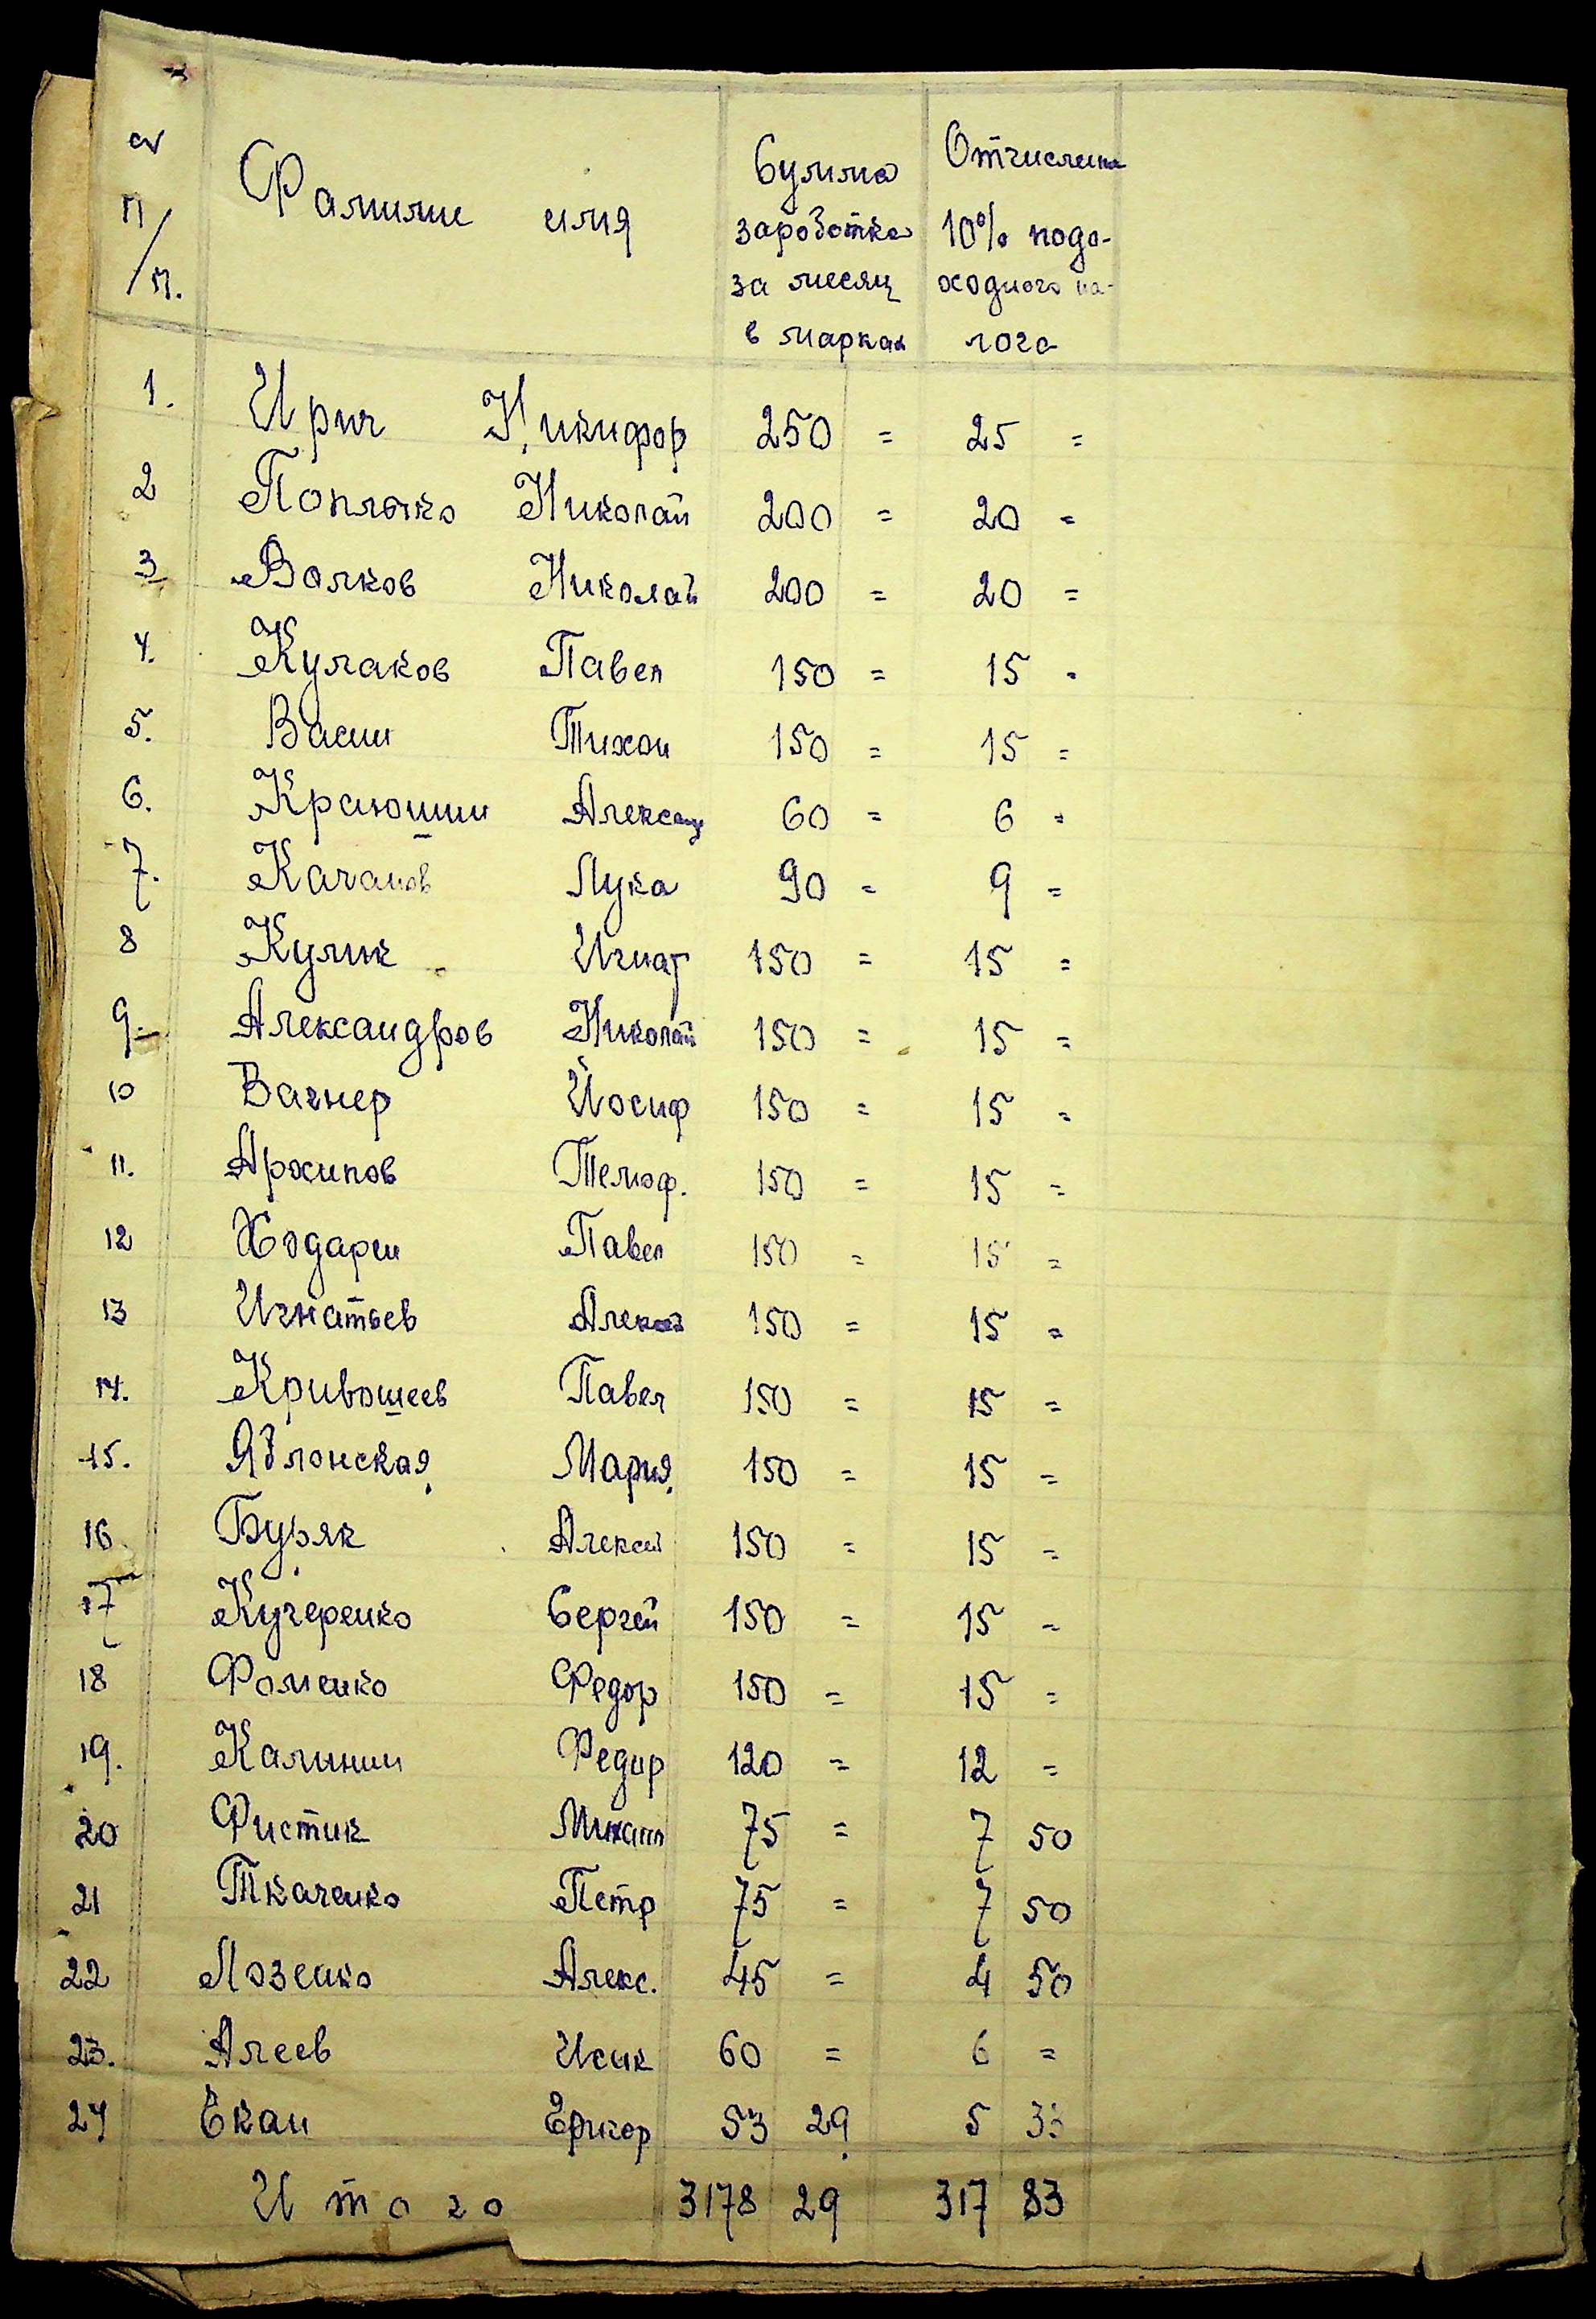 № п/п. Фамилие имя Сумма заработка за месяц в марках Отчислено 10% подо-оходного на-лога
1. Ирич Никифор 250 = 25 =
2 Николай 200 = 20 =
3 Волков Николай 200 = 20 =
4. Кулаков Павел 150 = 15 =
5. Васин Тихон 150 = 15 =
6. Краюшин 60 = 6 =
7. Качанов Лука 90 = 9 =
8 Кулик Игнат 150 = 15 =
9. Александров Николай 150 = 15 =
10 Вагнер Йосиф 150 = 15 =
11. Архипов 150 = 15 =
12 Ходарен Павел 150 = 15 =
13 Игнатьев 150 = 15 =
14. Кривошеев Павел 150 = 15 =
15. Яблонская Мария 150 = 15 =
16. Буряк Алексей 150 = 15 =
17 Кучеренко Сергей 150 = 15 =
18 Фоменко Федор 150 = 15 =
19. Калинин Федир 120 = 12 =
20 Фистик Михаил 75 = 7 50
21 Ткаченко Петр 75 = 7 50
22 Лозенко Алекс. 45 = 4 50
23. Алеев Исик 60 = 6 =
24 Екан 53 29 5 33
Итого 3178 29 317 83